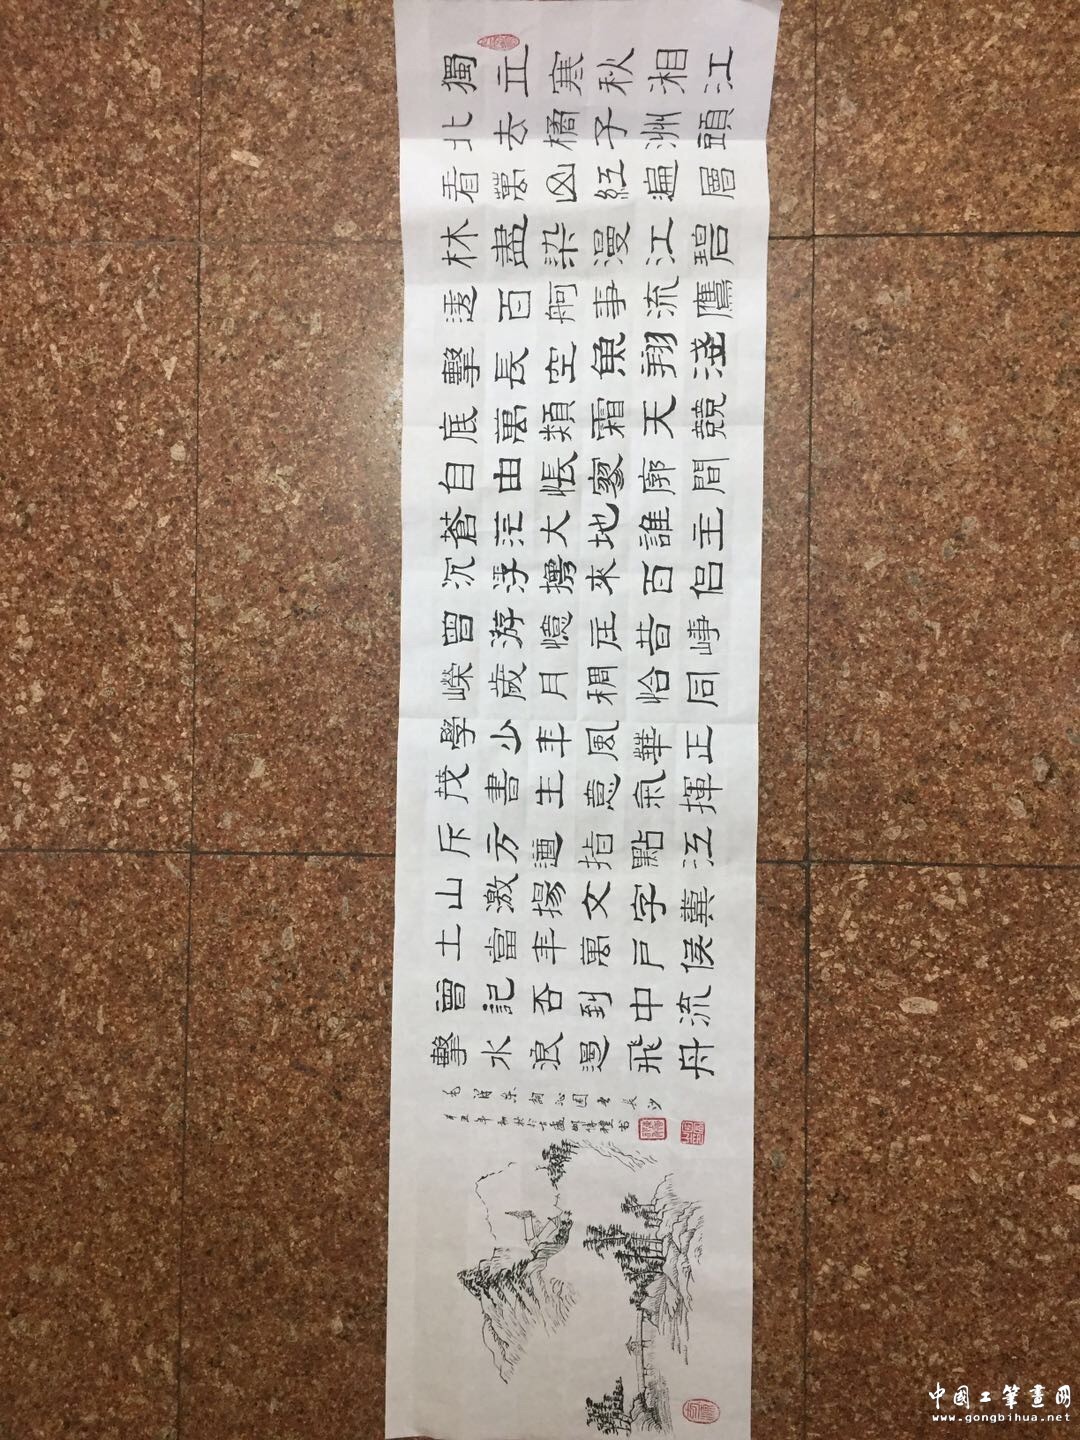 獨立寒秋湘江
北去橘子洲頭
看萬山紅遍層
林盡染漫江碧
透百舸爭流鷹
擊長空魚翔淺
底萬類霜天競
自由悵寥廓間
蒼茫大地誰主
沉浮攜來百侣
曾游憶往昔崢
嶸歲月稠恰同
學少年風華正
茂書生意氣揮
斥方遒指點江
山激揚文字糞
土當年萬戶侯
曾記否到中流
擊水浪遏飛舟
毛澤東詞沁園春長沙
辛丑年初秋於古盧書
中國工筆畫网
www.gongbihua.net